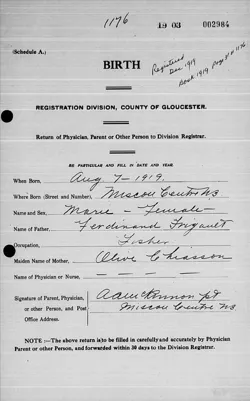 1176
1903 002984
(Schedule A.)
BIRTH
Registered
Dec 1919
Book 1919 Page # 1176
REGISTRATION DIVISION, COUNTY OF GLOUCESTER.
Return of Physician, Parent or Other Person to Division Registrar.
BE PARTICULAR AND FILL IN DATE AND YEAR.
When Born, Aug 7 - 1919
Where Born (Street and Number), Miscou Centre NB
Name and Sex, Marie - Female -
Name of Father, Ferdinand
Occupation, Fisher
Maiden Name of Mother, Olive Chiasson
Name of Physician or Nurse, — — —
Signature of Parent, Physician,
or other Person, and Post
Office Address.
Miscou Centre NB
NOTE :—The above return is to be filled in carefully and accurately by Physician
Parent or other Person, and forwarded within 30 days to the Division Registrar.